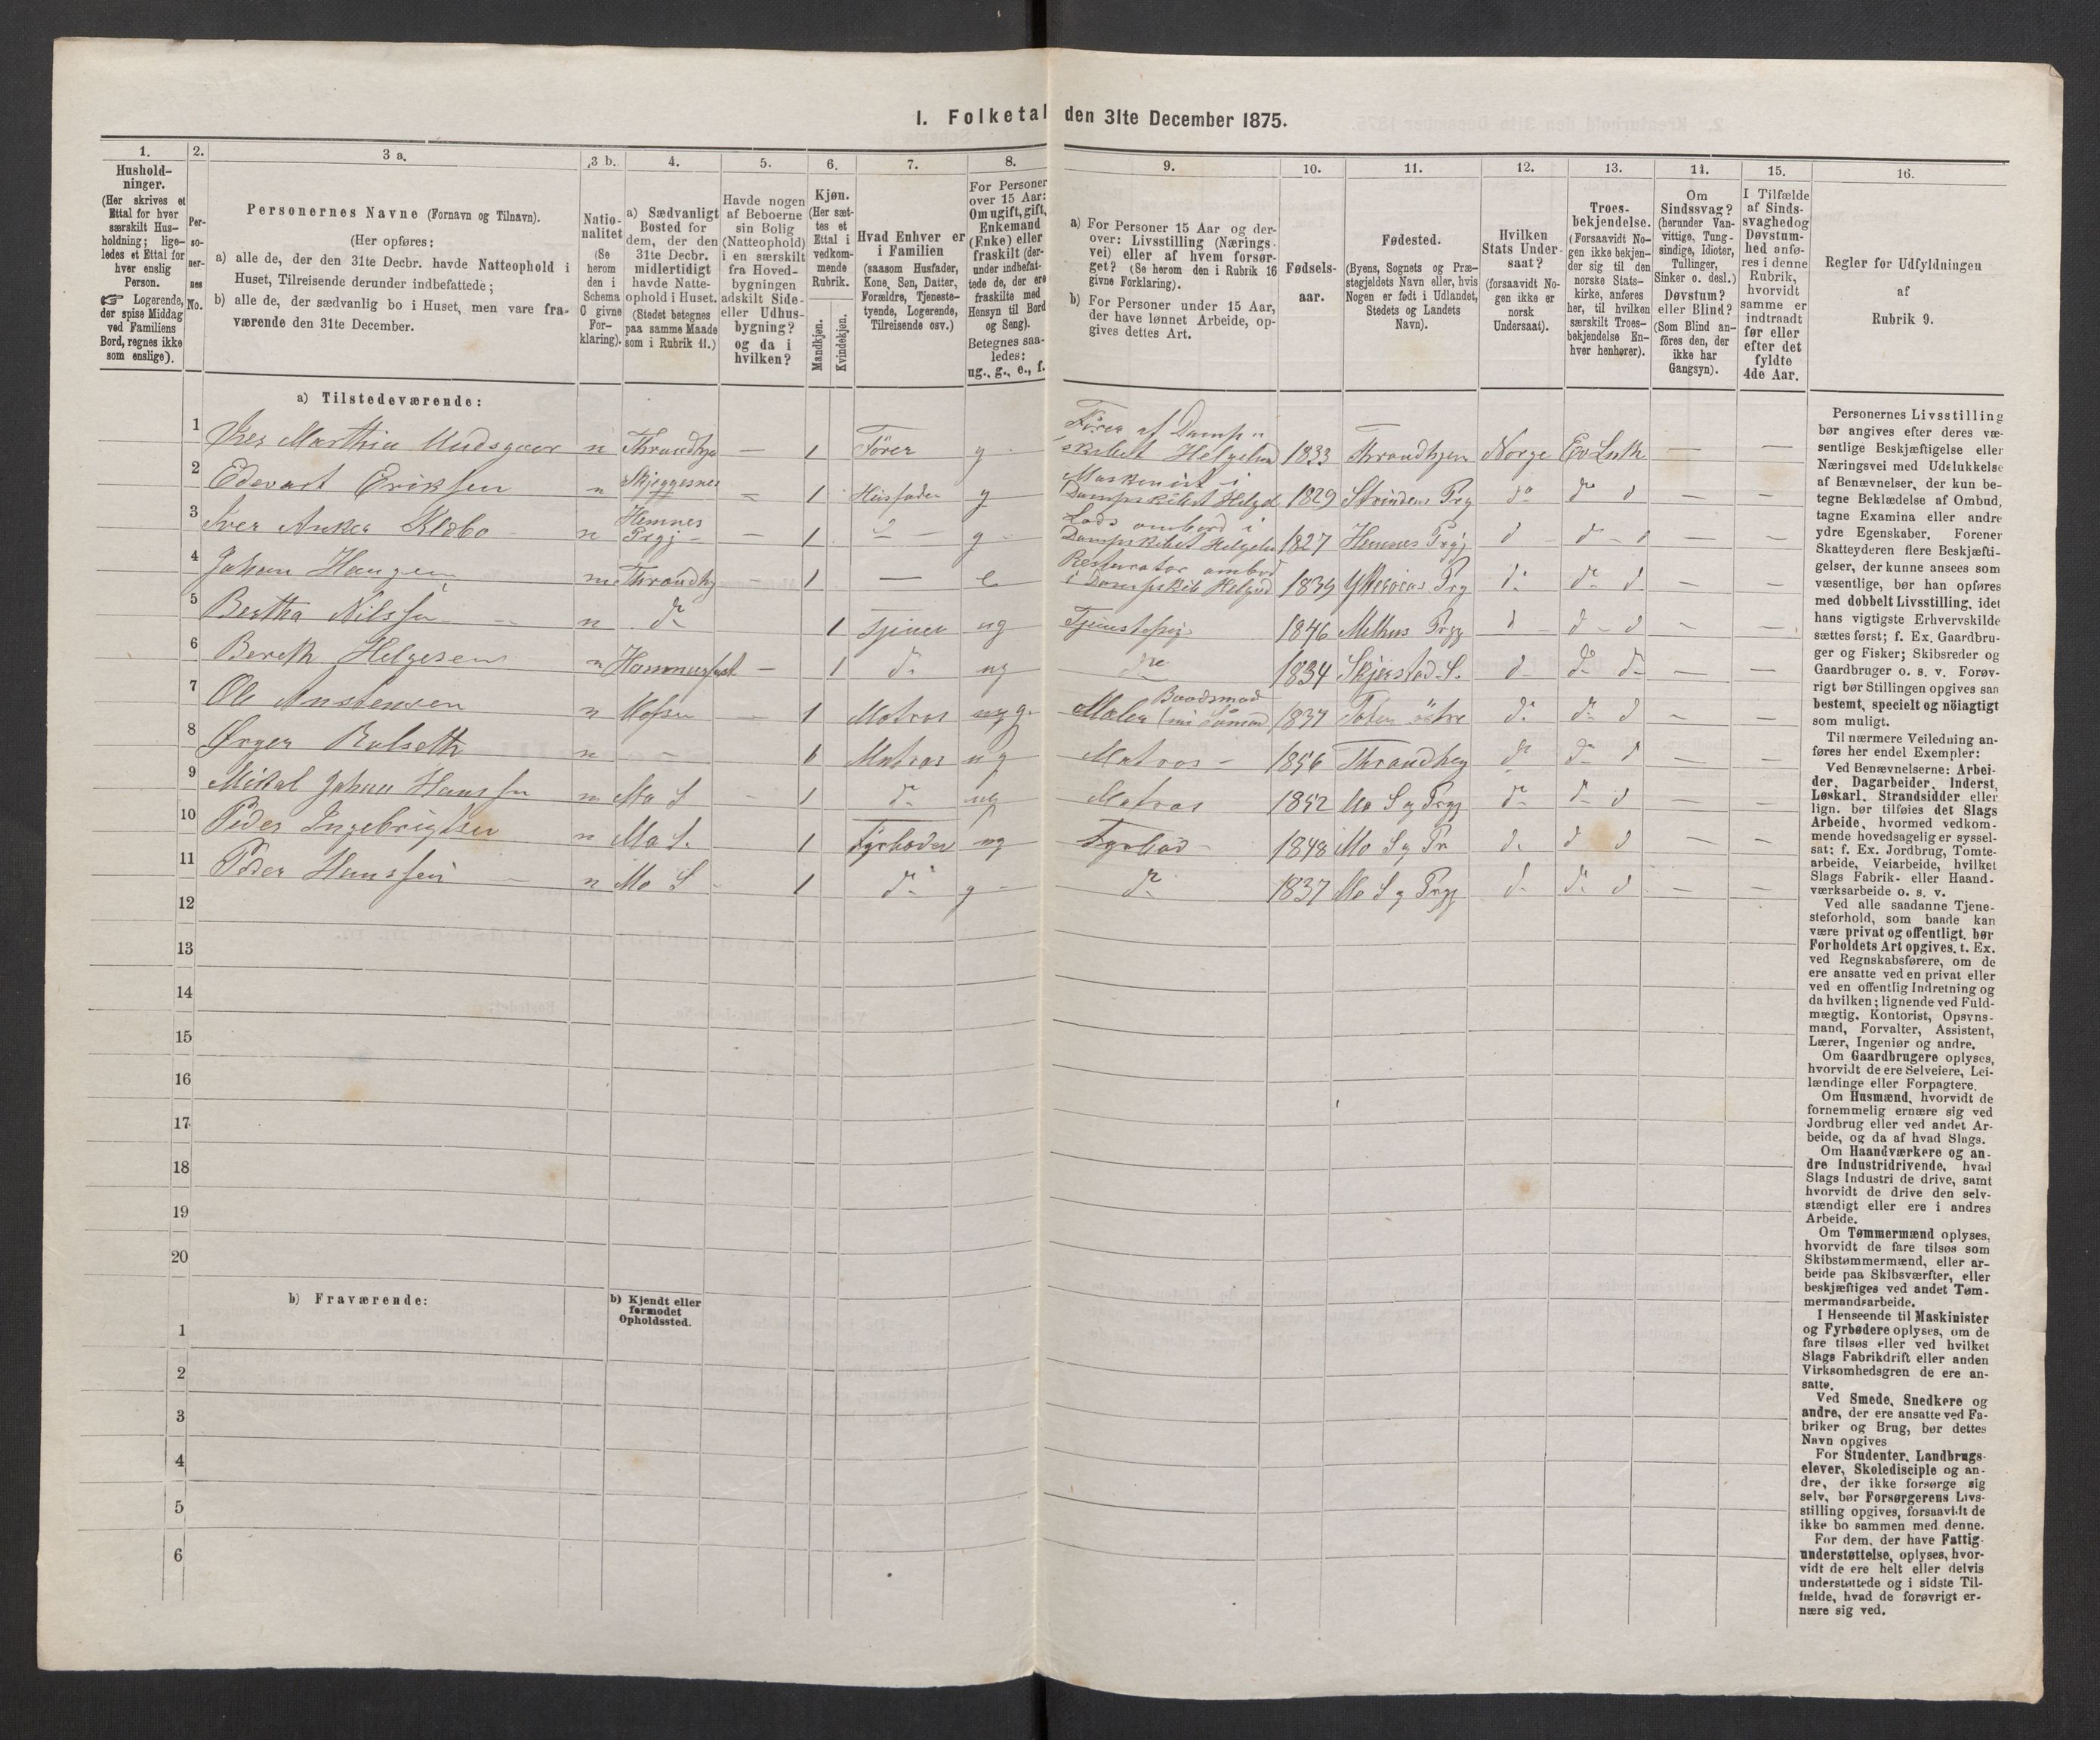 I. Folketal den 31te December 1875.
1.
Hushold-
ninger.
(Her skrives et
Ettal for hver
særskilt Hus-
holdning; lige-
ledes et Ettal for
hver enslig
Person.
☞ Logerende,
der spise Middag
ved Familiens
Bord, regnes ikke
som enslige).
2.
Per-
so-
ner-
nes
No.
3 a.
Personernes Navne (Fornavn og Tilnavn).
(Her opføres:
a) alle de, der den 31te Decbr. havde Natteophold i
Huset, Tilreisende derunder indbefattede;
b) alle de, der sædvanlig bo i Huset, men vare fra-
værende den 31te December.
3 b.
Natio-
nalitet
(Se
herom
den i
Schema
C givne
For-
klaring).
4.
a) Sædvanligt
Bosted for
dem, der den
31te Decbr.
midlertidigt
havde Natte-
ophold i Huset.
(Stedet betegnes
paa samme Maade
som i Rubrik 11.)
5.
Havde nogen
af Beboerne
sin Bolig
(Natteophold)
i en særskilt
fra Hoved-
bygningen
adskilt Side-
eller Udhus-
bygning?
og da i
hvilken?
6.
Kjøn.
(Her sæt-
tes et
Ettal i
vedkom-
mende
Rubrik.
Mandkjøn.
Kvindekjøn.
7.
Hvad Enhver er
i Familien
(saasom Husfader,
Kone, Søn, Datter,
Forældre, Tjeneste-
tyende, Logerende,
Tilreisende osv.)
8.
For Personer
over 15 Aar:
Om ugift, gift,
Enkemand
(Enke) eller
fraskilt (der-
under indbefat-
tede de, der ere
fraskilte med
Hensyn til Bord
og Seng).
Betegnes saa-
ledes:
ug., g., e., f.
9.
a) For Personer 15 Aar og der-
over: Livsstilling (Nærings-
vei) eller af hvem forsør-
get? (Se herom den i Rubrik 16
givne Forklaring).
b) For Personer under 15 Aar,
der have lønnet Arbeide, op-
gives dettes Art.
10.
Fødsels-
aar.
11.
Fødested.
(Byens, Sognets og Præ-
stegjeldets Navn eller, hvis
Nogen er født i Udlandet,
Stedets og Landets
Navn).
12.
Hvilken
Stats Under-
saat?
(forsaavidt No-
gen ikke er
norsk
Undersaat).
13.
Troes-
bekjendelse.
(Forsaavidt No-
gen ikke bekjen-
der sig til den
norske Stats-
kirke, anføres
her, til hvilken
særskilt Troes-
bekjendelse En-
hver henhører).
14.
Om
Sindssvag?
(herunder Van-
vittige, Tung-
sindige, Idioter,
Tullinger,
Sinker o. desl.)
Døvstum?
eller Blind?
(Som Blind an-
føres den, der
ikke har
Gangsyn).
15.
I Tilfælde
af Sinds-
svaghed og
Døvstum-
hed anfø-
res i denne
Rubrik,
hvorvidt
samme er
indtraadt
før eller
efter det
fyldte
4de Aar.
16.
Regler for Udfyldningen
af
Rubrik 9.
a) Tilstedeværende:
1 Martin n 1 Fører g. Fører af Damp-skibet 1833 Norge Ev Luth —
2 Edevart Eriksen n 1 Husfader g Maskinist i 1829 Strinden Prg do do d — —
3 Iver Anker Klæbo n Hemnes Prgj — — 1 g Lods ombord i Dampskibet 1827 Hemnes Prgj d d d — —
4 Johan Haugen — 1 — e ombord i 1839 Prg d d d — —
5 Bertha Nilssen n do 1 Tjener ug 1846 Melhus Prgj d d d — —
6 Helgesen n — 1 do ug do 1834 S. d do do — —
7 Ole n — 1 Matros g. Baadsmand 1837 do do d — —
8 n — 1 Matros ug Matros — 1856 do do d — —
9 Johan Hanssen n Mo S — 1 do ug Matros 1852 Mo S og Prgj do do d — —
10 Peder Ingebrigtsen n Mo S. 1 Fyrbøder ug 1848 Mo S og Pr d. d d — —
11 Peder Hanssen n Mo S — 1 do g — do 1837 Mo S og Prgj d. do d — —
12
13
14
15
16
17
18
19
20
b) Fraværende:
b) Kjendt eller
formodet
Opholdssted.
1
2
3
4
5
6
Personernes Livsstilling
bør angives efter deres væ-
sentlige Beskjæftigelse eller
Næringsvei med Udelukkelse
af Benævnelser, der kun be-
tegne Beklædelse af Ombud,
tagne Examina eller andre
ydre Egenskaber. Forener
Skatteyderen flere Beskjæfti-
gelser, der kunne ansees som
væsentlige, bør han opføres
med dobbelt Livsstilling, idet
hans vigtigste Erhvervskilde
sættes først; f. Ex. Gaardbru-
ger og Fisker; Skibsreder og
Gaardbruger o. s. v. Forøv-
rigt bør Stillingen opgives saa
bestemt, specielt og nöiagtigt
som muligt.
Til nærmere Veiledning an-
føres her endel Exempler:
Ved Benævnelserne: Arbei-
der, Dagarbeider, Inderst,
Løskarl, Strandsidder eller
lign. bør tilføies det Slags
Arbeide, hvormed vedkom-
mende hovedsagelig er syssel-
sat; f. Ex. Jordbrug, Tomte-
arbeide, Veiarbeide, hvilket
Slags Fabrik- eller Haand-
værksarbeide o. s. v.
Ved alle saadanne Tjene-
steforhold, som baade kan
være privat og offentligt, bør
Forholdets Art opgives, t. Ex.
ved Regnskabsførere, om de
ere ansatte ved en privat eller
ved en offentlig Indretning og
da hvilken; lignende ved Fuld-
mægtig, Kontorist, Opsyns-
mand, Forvalter, Assistent,
Lærer, Ingeniør og andre.
Om Gaardbrugere oplyses,
hvorvidt de ere Selveiere, Lei-
lændinge eller Forpagtere.
Om Husmænd, hvorvidt de
fornemmelig ernære sig ved
Jordbrug eller ved andet Ar-
beide, og da af hvad Slags.
Om Haandværkere og an-
dre Industridrivende, hvad
Slags Industri de drive, samt
hvorvidt de drive den selv-
stændigt eller ere i andres
Arbeide.
Om Tømmermænd oplyses,
hvorvidt de fare tilsøs som
Skibstømmermænd, eller ar-
beide paa Skibsværfter, eller
beskjæftiges ved andet Tøm-
mermandsarbeide.
I Henseende til Maskinister
og Fyrbødere oplyses, om de
fare tilsøs eller ved hvilket
Slags Fabrikdrift eller anden
Virksomhedsgren de ere an-
satte.
Ved Smede, Snedkere og
andre, der ere ansatte ved Fa-
briker og Brug, bør dettes
Navn opgives
For Studenter, Landbrugs-
elever, Skoledisciple og an-
dre, der ikke forsørge sig
selv, bør Forsørgerens Livs-
stilling opgives, forsaavidt de
ikke bo sammen med denne.
For dem, der have Fattig-
understøttelse, oplyses, hvor-
vidt de ere helt eller delvis
understøttede og i sidste Til-
fælde, hvad de forøvrigt er-
nære sig ved.